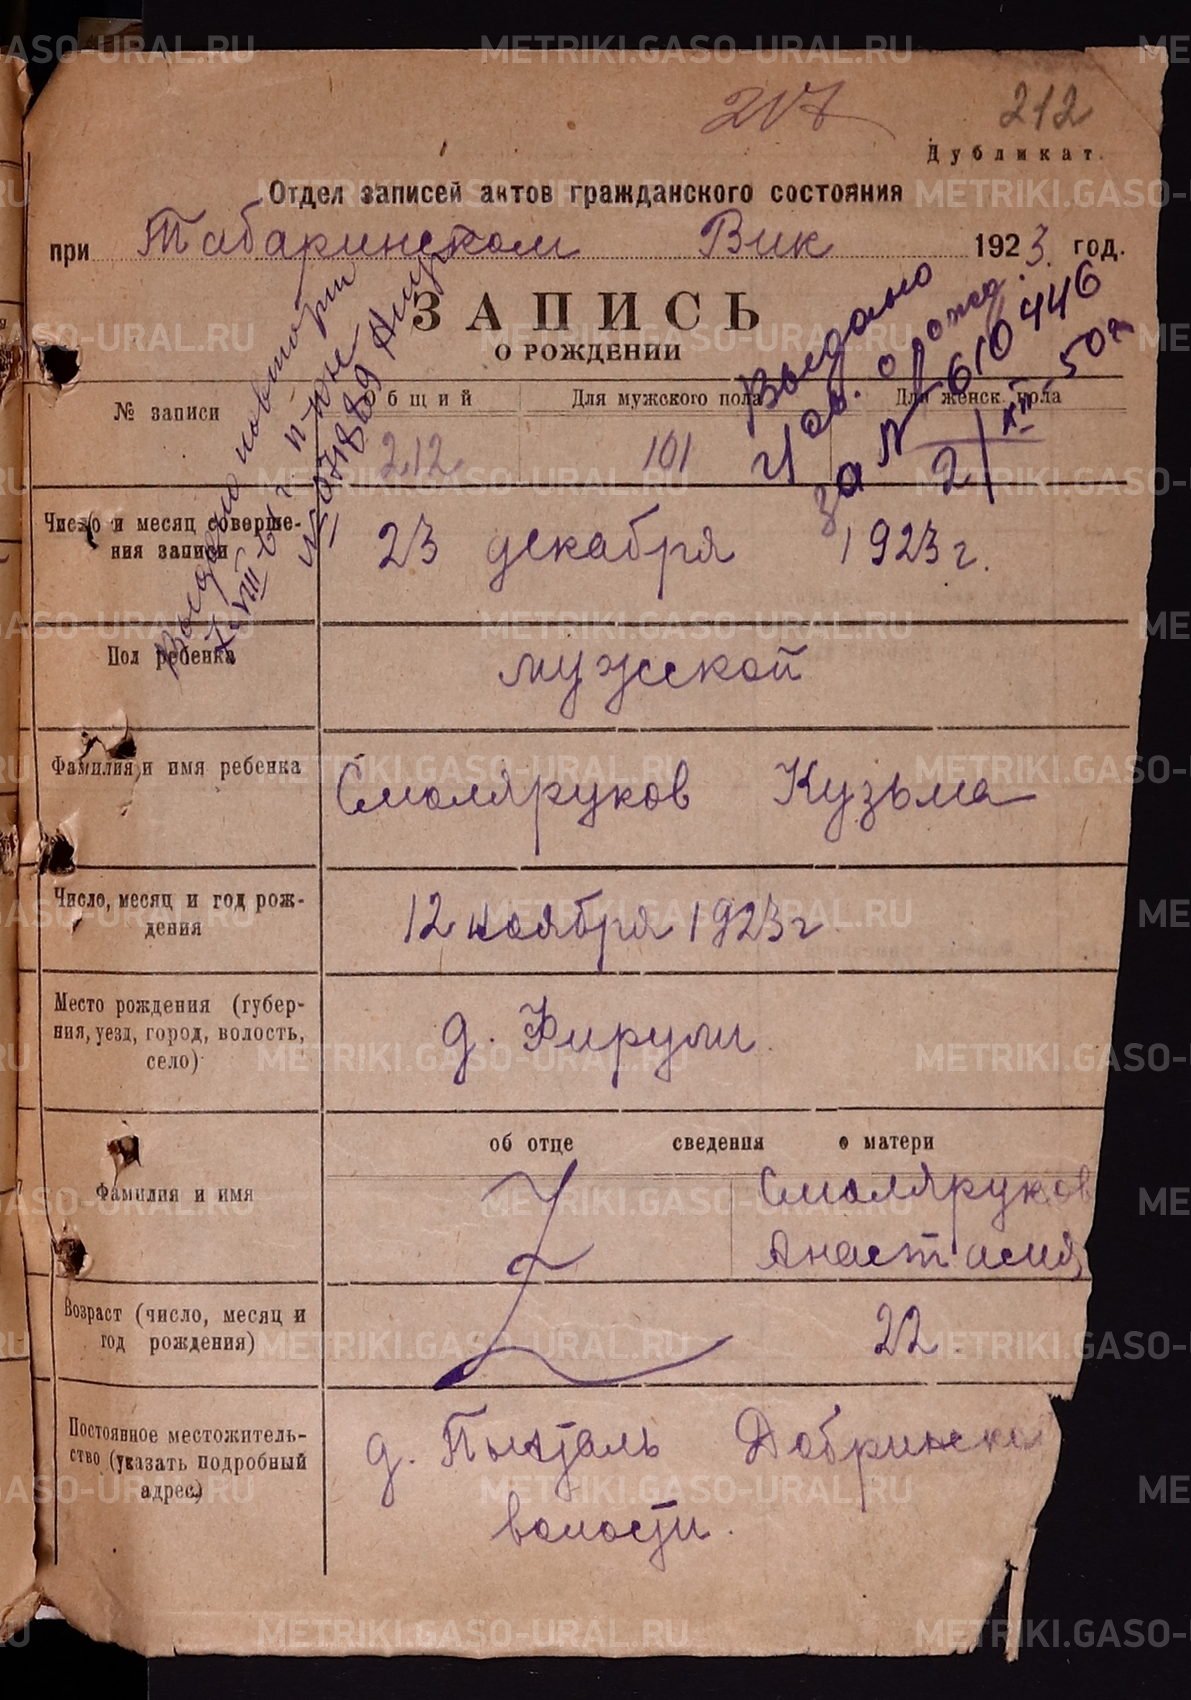 207
212
Дубликат.
Отдел записей актов гражданского состояния
при Табаринском Вик 1923 год.
ЗАПИСЬ
О РОЖДЕНИИ
Выдано повторн
Выдано
св. о рожд.
за № 610446
№ записи
Общий
Для мужского пола
Для женск. пола
212
101
Число и месяц соверше-
ния записи
23 декабря 1923 г.
Пол ребенка
мужской
Фамилия и имя ребенка
Смоляруков Кузьма
Число, месяц и год рож-
дения
12 ноября 1923 г
Место рождения (губер-
ния, уезд, город, волость,
село)
д. Фирули
об отце сведения о матери
Фамилия и имя
Смоляруков
Анастасия
Возраст (число, месяц и
год рождения)
22
Постоянное местожитель-
ство (указать подробный
адрес)
д. Добринско
волости.
METRIKI.GASO-URAL.RU